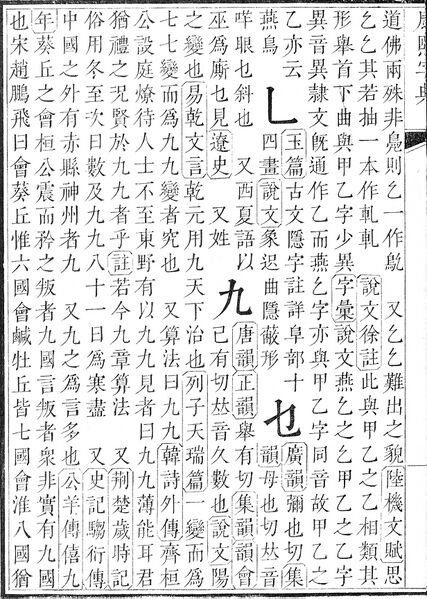 康熙字典
道佛兩殊非鳧則乙一作鳦 又乙乙難出之貌陸機文賦思
乙乙其若抽一本作軋軋 說文徐註此與甲乙之乙相類其
形舉首下曲與甲乙字少異字彙說文燕乙之乙甲乙之乙字
異音異隷文旣通作乙而燕乙字亦與甲乙字同音故甲乙之
乙亦云
燕鳥
乚
玉篇古文隱字註詳阜部十
四畫說文象迟曲隱蔽形
乜
廣韻彌也切集
韻母也切𠀤音
咩眼乜斜也 又西夏語以
巫爲廝乜見遼史 又姓
九
唐韻正韻舉有切集韻韻會
己有切𠀤音久數也說文陽
之變也易乾文言乾元用九天下治也列子天瑞篇一變而爲
七七變而爲九九變者究也 又算法曰九九韓詩外傳齊桓
公設庭燎待人士不至東野有以九九見者曰九九薄能耳君
猶禮之況賢於九九者乎註若今九章算法 又荆楚歲時記
俗用冬至次日數及九九八十一日爲寒盡 又史記騶衍傳
中國之外有赤縣神州者九 又九之爲言多也公羊傳僖九
年葵丘之會桓公震而矜之叛者九國言叛者衆非實有九國
也宋趙鵬飛曰會葵丘惟六國會鹹牡丘皆七國會淮八國猶